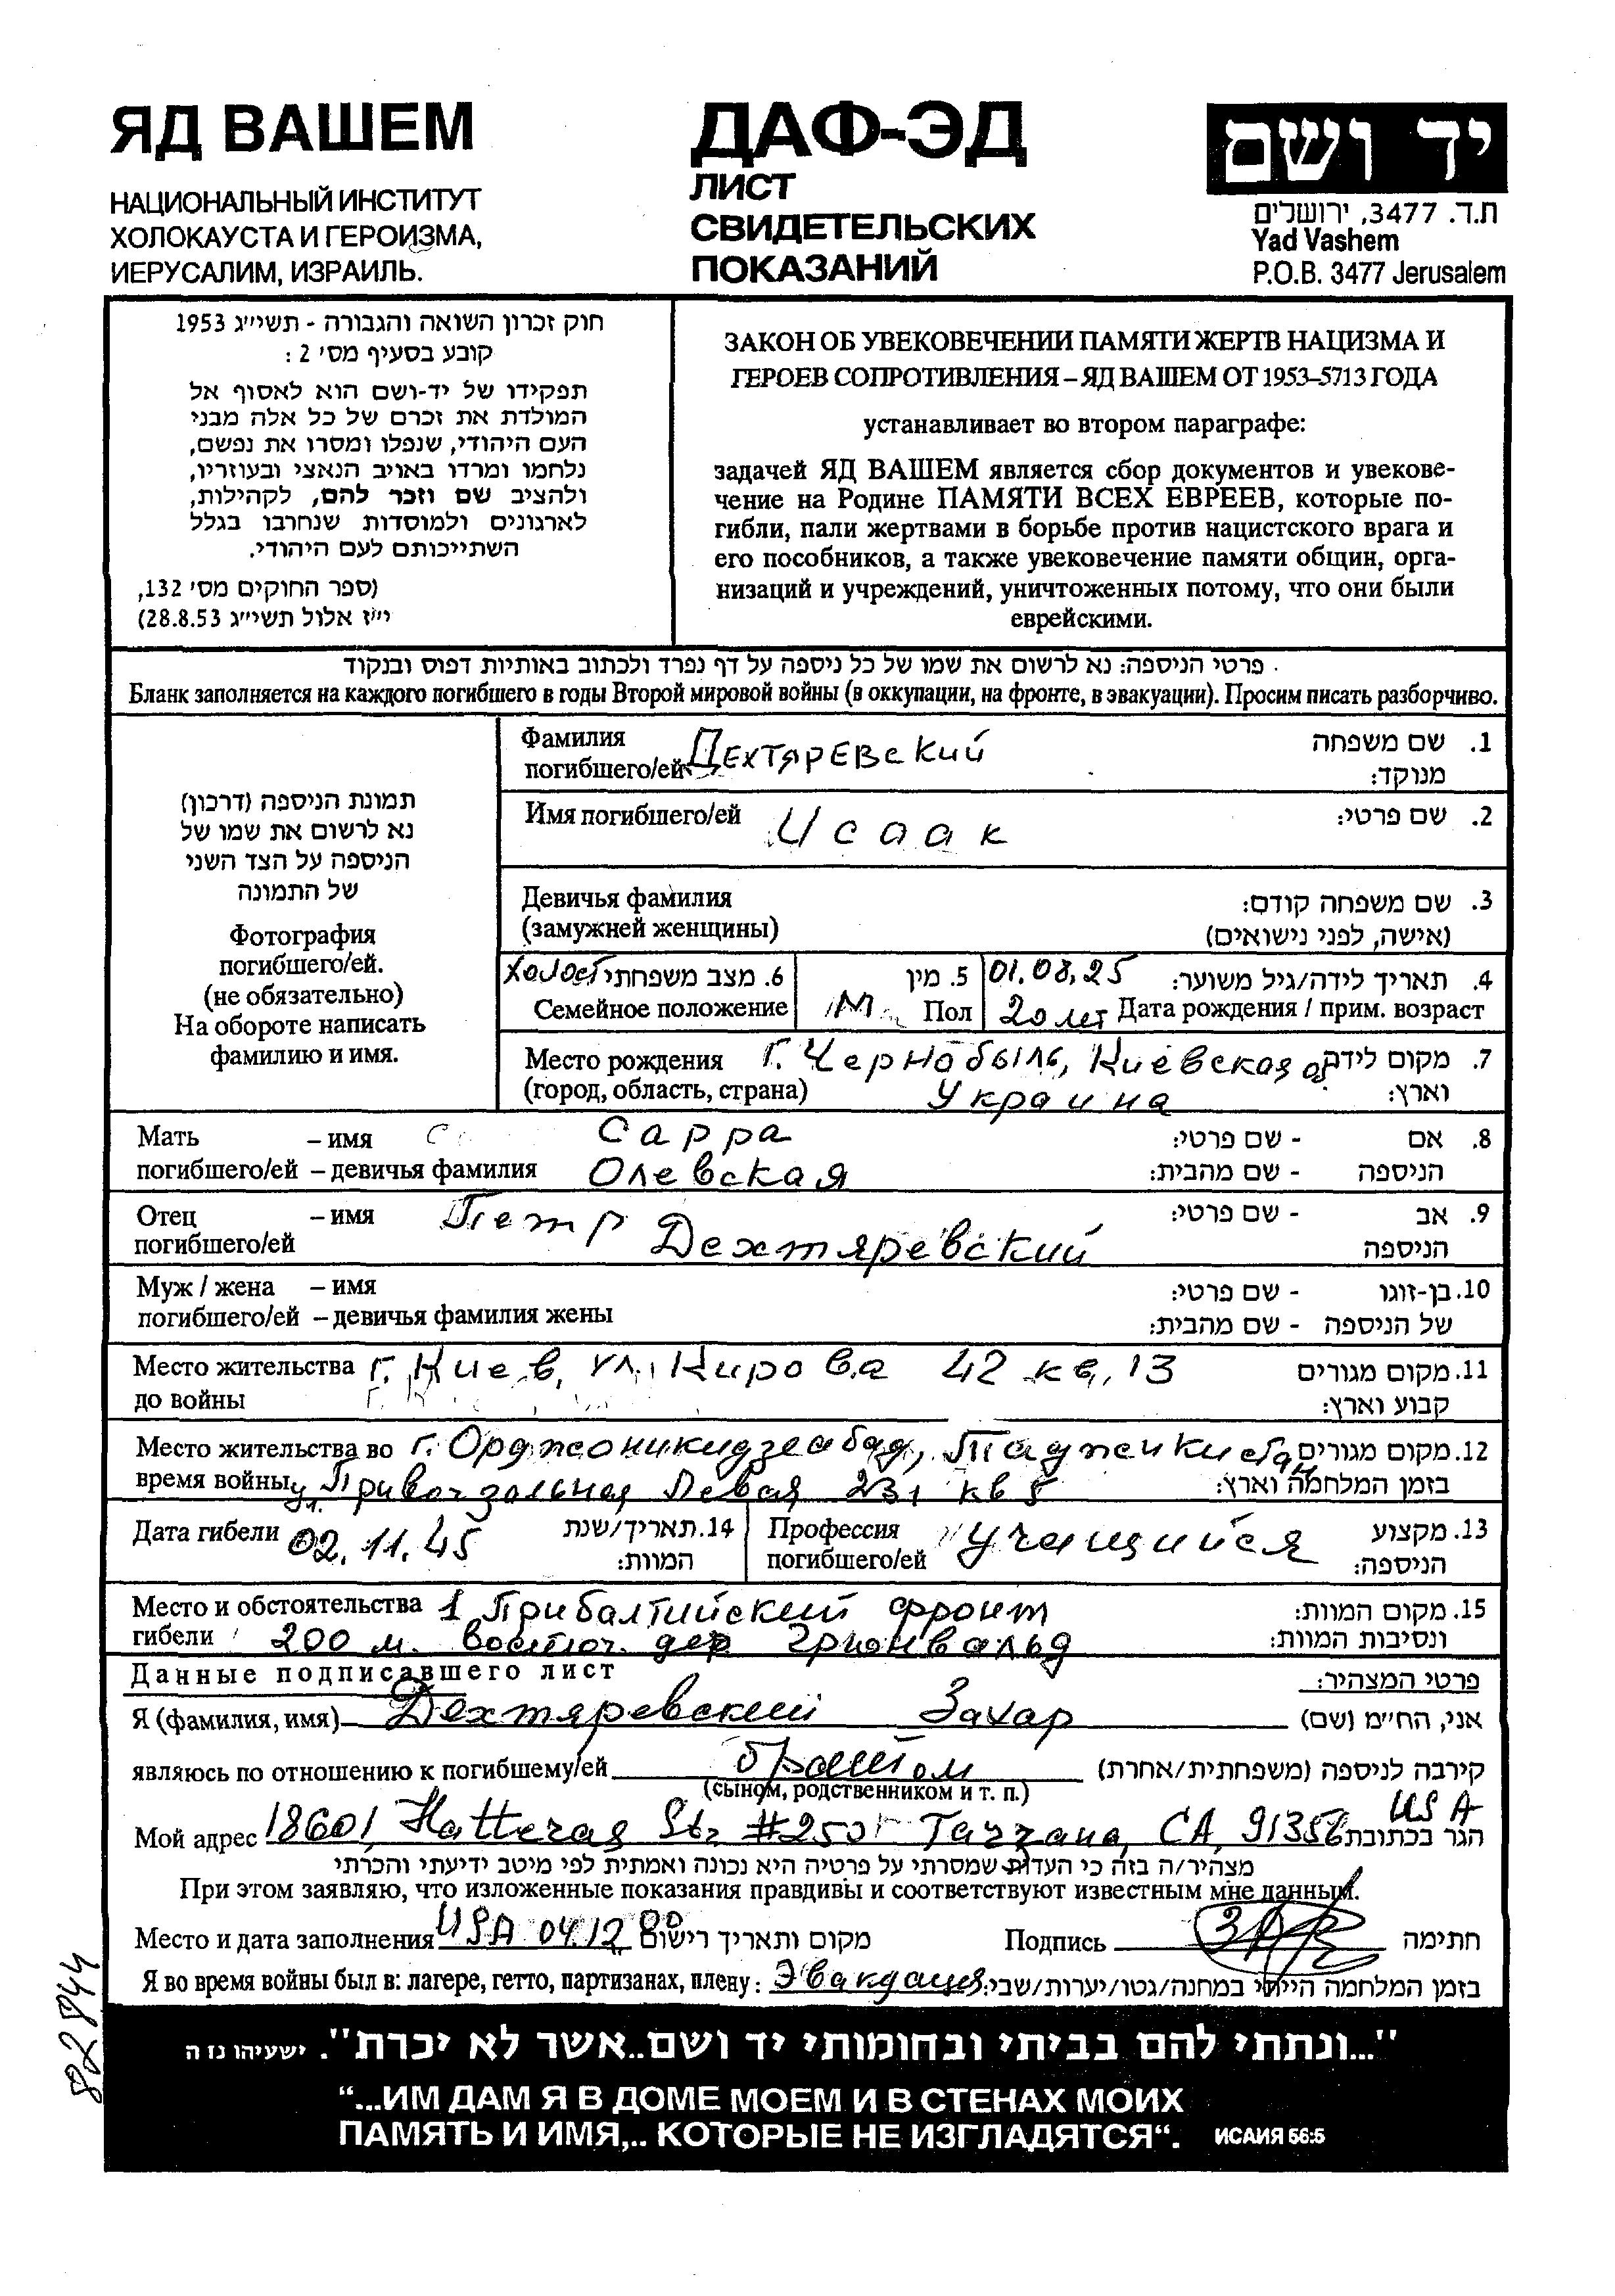 ЯД ВАШЕМ
НАЦИОНАЛЬНЫЙ ИНСТИТУТ
ХОЛОКАУСТА И ГЕРОИЗМА,
ИЕРУСАЛИМ, ИЗРАИЛЬ.
ДАФ-ЭД
ЛИСТ
СВИДЕТЕЛЬСКИХ
ПОКАЗАНИЙ
יד ושם
ת.ד. 3477, ירושלים
Yad Vashem
P.O.B. 3477 Jerusalem
חוק זכרון השואה והגבורה - תשי״ג 1953
קובע בסעיף מס׳ 2 :
תפקידו של יד-ושם הוא לאסוף אל
המולדת את זכרם של כל אלה מבני
העם היהודי, שנפלו ומסרו את נפשם,
נלחמו ומרדו באויב הנאצי ובעוזריו,
ולהציב שם וזכר להם, לקהילות,
לארגונים ולמוסדות שנחרבו בגלל
השתייכותם לעם היהודי.
(ספר החוקים מס׳ 132,
י״ז אלול תשי״ג 28.8.53)
ЗАКОН ОБ УВЕКОВЕЧЕНИИ ПАМЯТИ ЖЕРТВ НАЦИЗМА И
ГЕРОЕВ СОПРОТИВЛЕНИЯ – ЯД ВАШЕМ ОТ 1953–5713 ГОДА
устанавливает во втором параграфе:
задачей ЯД ВАШЕМ является сбор документов и увекове-
чение на Родине ПАМЯТИ ВСЕХ ЕВРЕЕВ, которые по-
гибли, пали жертвами в борьбе против нацистского врага и
его пособников, а также увековечение памяти общин, орга-
низаций и учреждений, уничтоженных потому, что они были
еврейскими.
פרטי הניספה: נא לרשום את שמו של כל ניספה על דף נפרד ולכתוב באותיות דפוס ובנקוד
Бланк заполняется на каждого погибшего в годы Второй мировой войны (в оккупации, на фронте, в эвакуации). Просим писать разборчиво.
תמונת הניספה (דרכון)
נא לרשום את שמו של
הניספה על הצד השני
של התמונה
Фотография
погибшего/ей.
(не обязательно)
На обороте написать
фамилию и имя.
Фамилия
погибшего/ей Дехтяревский
1. שם משפחה
מנוקד:
Имя погибшего/ей Исаак 2. שם פרטי:
Девичья фамилия
(замужней женщины)
3. שם משפחה קודם:
(אישה, לפני נישואים)
холост 6. מצב משפחתי
Семейное положение
5. מין
М Пол
01.08.25 4. תאריך לידה/גיל משוער:
20 лет Дата рождения / прим. возраст
Место рождения г. Чернобыль, Киевская 7. מקום לידה
(город, область, страна) Украина וארץ:
Мать – имя Сарра 8. אם - שם פרטי:
погибшего/ей – девичья фамилия Олевская הניספה - שם מהבית:
Отец – имя Петр 9. אב - שם פרטי:
погибшего/ей Дехтяревский הניספה
Муж / жена – имя 10. בן-זוגו - שם פרטי:
погибшего/ей – девичья фамилия жены של הניספה - שם מהבית:
Место жительства г. Киев, ул. Кирова 42 кв. 13 11. מקום מגורים
до войны קבוע וארץ:
Место жительства во г. Орджоникидзеабад, Таджикистан 12. מקום מגורים
время войны ул. Привокзальная Левая 231 кв 5 בזמן המלחמה וארץ:
Дата гибели 02.11.45 14. תאריך/שנת
המוות:
Профессия Учащийся 13. מקצוע
погибшего/ей הניספה:
Место и обстоятельства 1 Прибалтийский фронт 15. מקום המוות:
гибели 200 м. восточ. дер. Грюнвальд ונסיבות המוות:
Данные подписавшего лист פרטי המצהיר:
Я (фамилия, имя) Дехтяревский Захар אני, הח״מ (שם)
являюсь по отношению к погибшему/ей братом קירבה לניספה (משפחתית/אחרת)
(сыном, родственником и т. п.)
USA
Мой адрес 18601 Hatteras Str #250 Tarzana, CA, 91356 הגר בכתובת
מצהיר/ה בזה כי העדות שמסרתי על פרטיה היא נכונה ואמתית לפי מיטב ידיעתי והכרתי
При этом заявляю, что изложенные показания правдивы и соответствуют известным мне данным.
Место и дата заполнения USA 04.12.00 מקום ותאריך רישום Подпись חתימה
Я во время войны был в: лагере, гетто, партизанах, плену: Эвакуация בזמן המלחמה הייתי במחנה/גטו/יערות/שבי:
82844
"...ונתתי להם בביתי ובחומותי יד ושם..אשר לא יכרת". ישעיהו נז ה
“...ИМ ДАМ Я В ДОМЕ МОЕМ И В СТЕНАХ МОИХ
ПАМЯТЬ И ИМЯ,.. КОТОРЫЕ НЕ ИЗГЛАДЯТСЯ“. ИСАИЯ 56:5